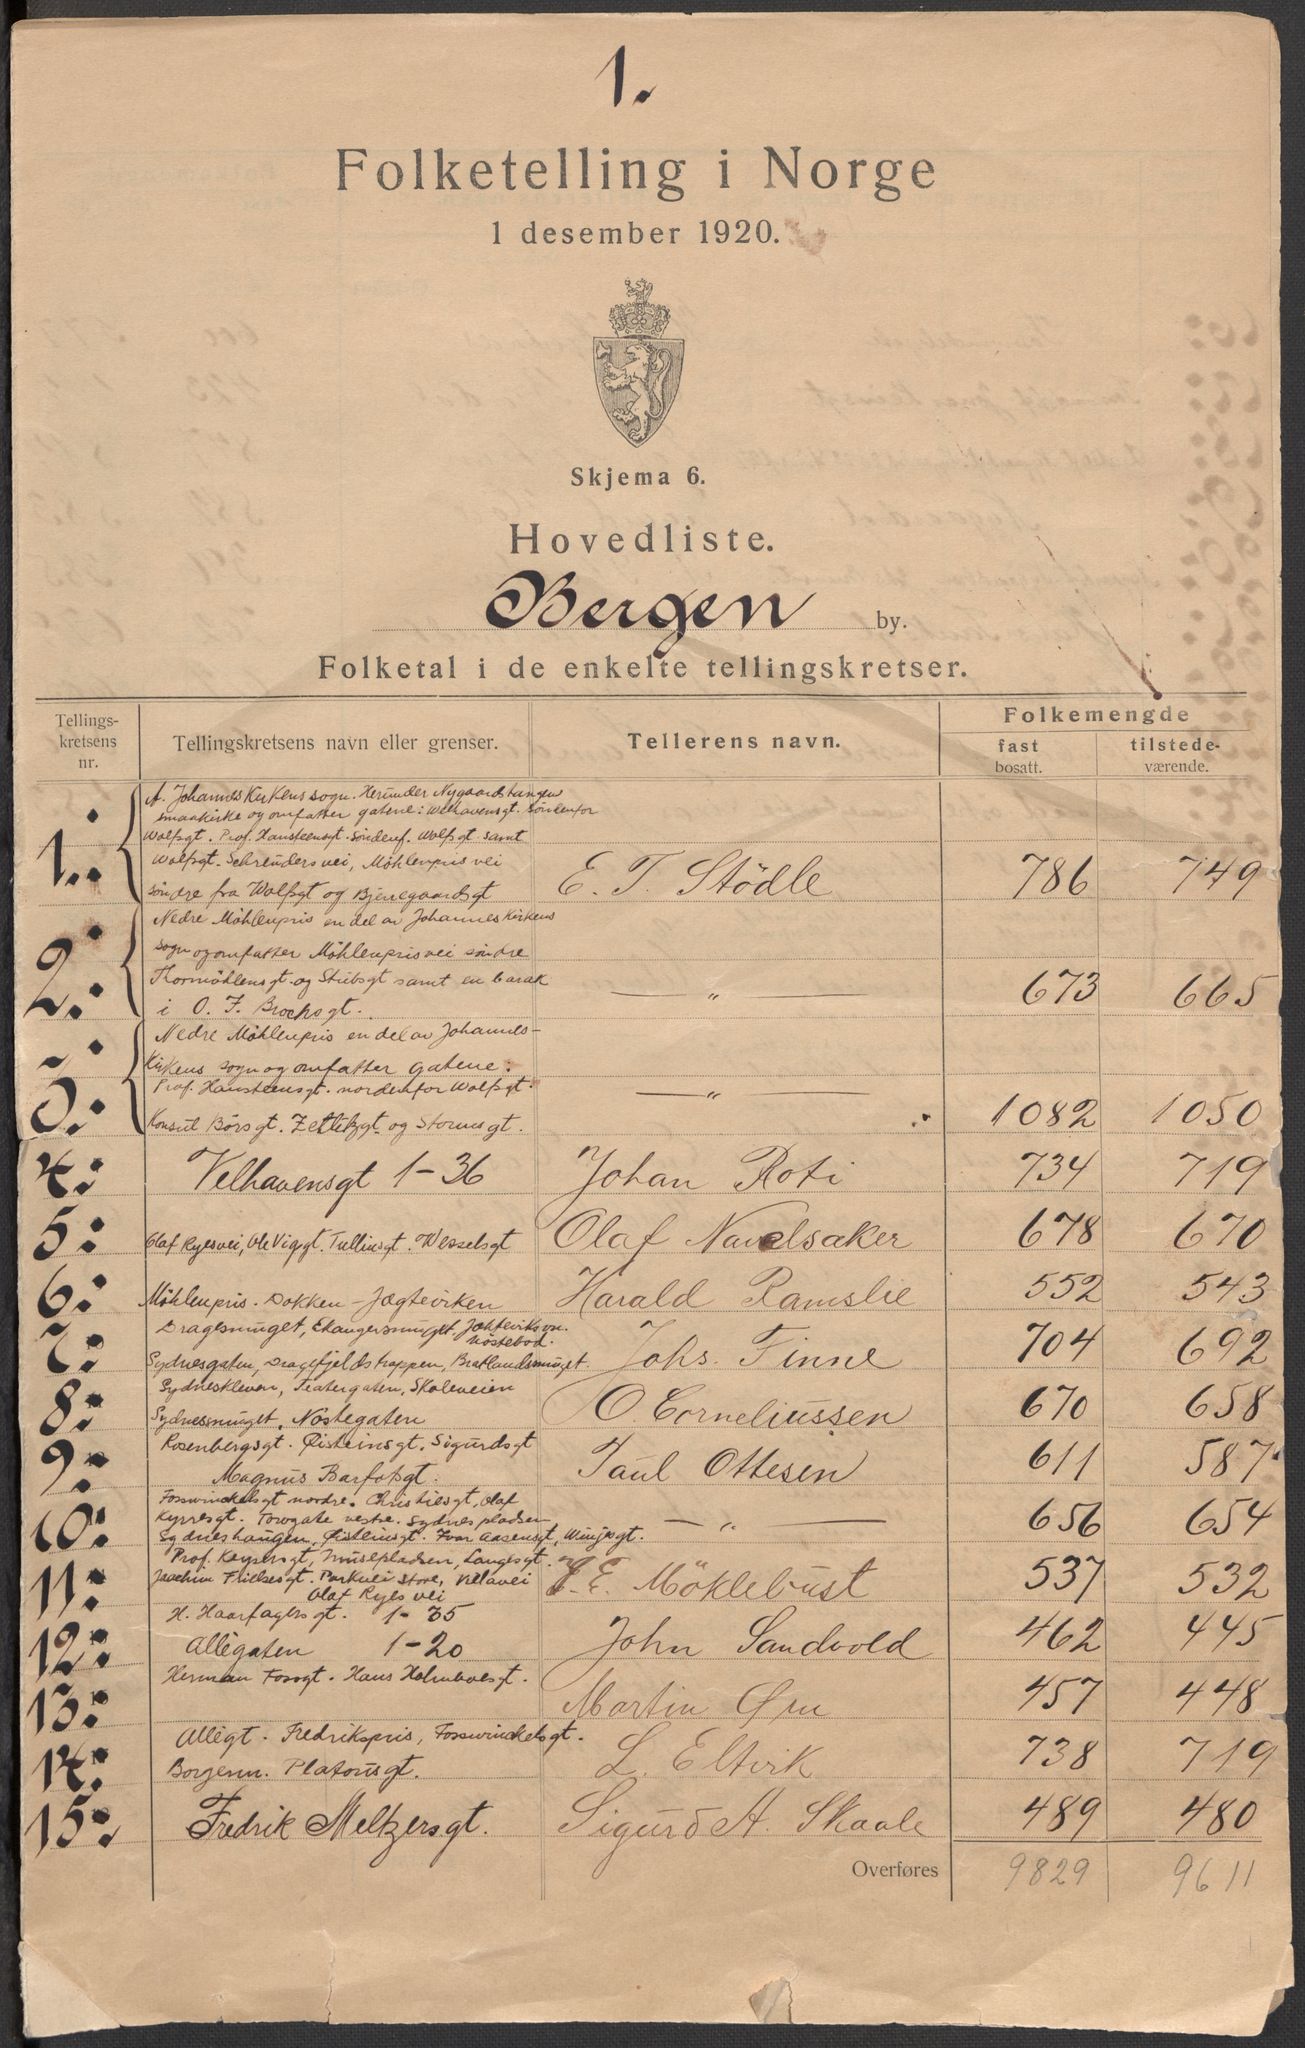 1.
Folketelling i Norge
1 desember 1920.
Skjema 6.
Hovedliste.
Bergen by.
Folketal i de enkelte tellingskretser.
Tellings-
kretsens
nr.
Tellingskretsens navn eller grenser.
Tellerens navn.
Folkemengde
fast
bosatt.
tilstede-
værende.
1. A. Johannes Kirkens sogn. Herunder Nygaardstangen
smaakirke og omfatter gatene: Welhavensgt. søndenfor
Wolfsgt. Prof. Hansteensgt. søndenf. Wolfsgt samt
Wolfsgt. Schreuders vei, Möhlenpris vei
søndre fra Wolfsgt og Bjerregaardsgt E. T. Stödle 786 749
2. Nedre Möhlenpris en del av Johannes Kirkens
sogn og omfatter Möhlenprisvei søndre
Thormöhlensgt. og Stübsgt samt en barak
i O. J. Brochsgt. — " — 673 665
3. Nedre Möhlenpris en del av Johannes-
Kirkens sogn og omfatter gatene:
Prof. Hansteensgt. nordenfor Wolfsgt.
Konsul Børsgt. Zetlitzgt. og Stormsgt. — " — 1082 1050
4. Velhavensgt 1-36 Johan Roti 734 719
5. Olaf Ryesvei, Ole Vigsgt. Tullinsgt. Wesselsgt Olaf Navelsaker 678 670
6. Möhlenpris. Dokken - Jægteviken Harald Ramslie 552 543
7. Dragesmuget, Ekangersmuget, Jekteviksvn.
Nöstebod.
Sydnesgaten, Dragefjeldstrappen, Bratlandsmuget. Johs. Finne 704 692
8. Sydneskleven, Teatergaten, Skoleveien
Sydnesmuget, Nöstegaten O Corneliussen 670 658
9. Rosenbergsgt. Øisteinsgt. Sigurdsgt
Magnus Barfotsgt. Paul Ottesen 611 587
10. Fosswinckelsgt nordre. Christiesgt, Olaf
Kyrresgt. Torvgate vestre. Sydnespladsen
Sydneshaugen, Øisteinsgt. Ivar Aasensgt, Winjesgt. — " — 656 654
11. Prof. Keysersgt, Musepladsen, Langesgt.
Joachim Frielesgt. Parkvei store, Villavei
Olaf Ryes vei E. Möklebust 537 532
12. H. Haarfagersgt. 1-35
Allégaten 1-20 John Sandvold 462 445
13. Herman Fossgt. Hans Holmboesgt. Martin Øen 457 448
14. Allégt. Fredrikspris, Fosswinckelsgt.
Borgerm. Platousgt. L. Eltvik 738 719
15. Fredrik Meltzersgt. Sigurd A. Skaale 489 480
Overføres 9829 9611